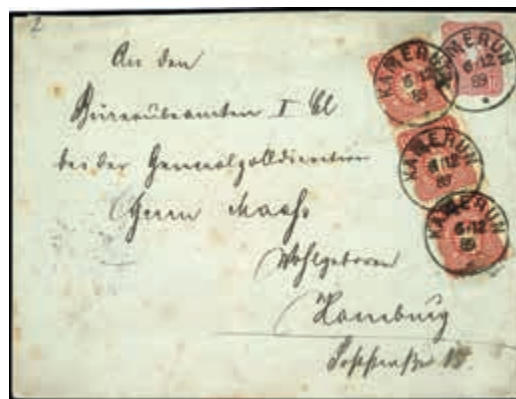 2
An den
Bureaubeamten I Cl
bei der Generalzolldirection
Herrn Maass
Wohlgeboren
Hamburg
15.
KAMERUN
6/12
89
KAMERUN
6/12
89
KAMERUN
6/12
89
KAMERUN
6/12
89